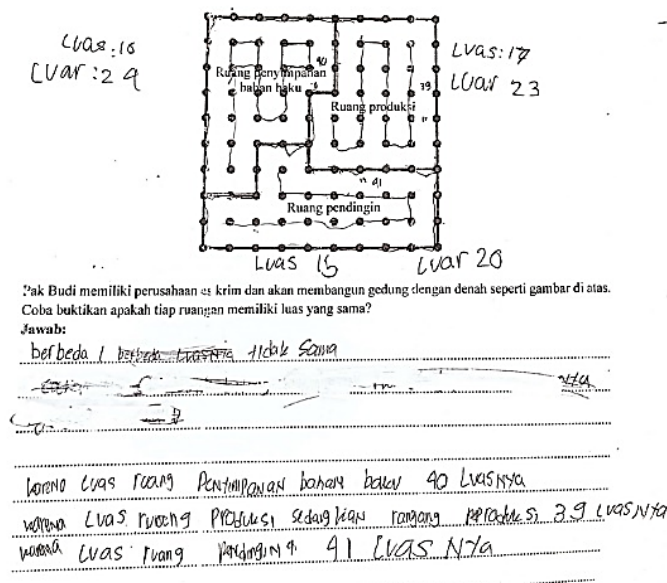 Luas: 16
Luar: 24
40
Ruang penyimpanan
bahan baku
Luas: 17
Luar 23
39
Ruang produksi
11
11 41
Ruang pendingin
Luas 15
Luar 20
Pak Budi memiliki perusahaan es krim dan akan membangun gedung dengan denah seperti gambar di atas.
Coba buktikan apakah tiap ruangan memiliki luas yang sama?
Jawab:
berbeda / tidak sama
nya
karena Luas ruang Penyimpanan bahan baku 40 Luasnya
karena Luas ruang Produksi sedangkan 39 Luasnya
karena Luas ruang 41 Luas Nya